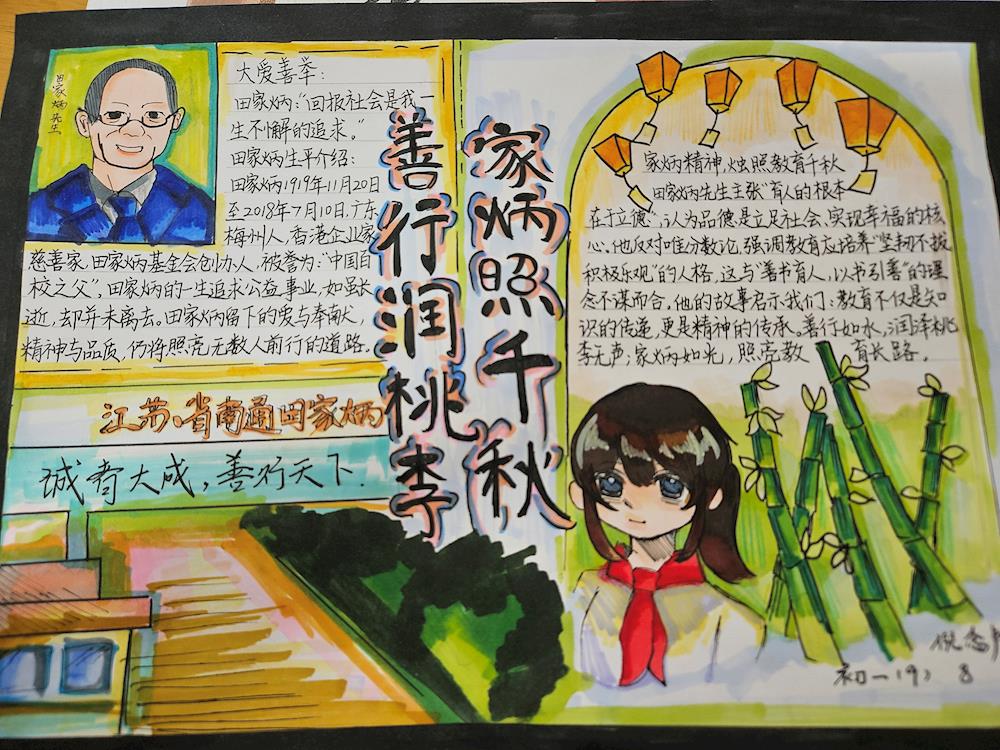 田家炳先生
大爱善举：
田家炳：“回报社会是我一
生不懈的追求。”
田家炳生平介绍：
田家炳1919年11月20日
至2018年7月10日，广东
梅州人，香港企业家
慈善家，田家炳基金会创办人，被誉为：“中国百
校之父”，田家炳的一生追求公益事业，如虽长
逝，却并未离去。田家炳留下的爱与奉献，
精神与品质，仍将照亮无数人前行的道路。
江苏省南通田家炳
诚者大成，善行天下.
家炳照千秋
善行润桃李
家炳精神，烛照教育千秋
田家炳先生主张“育人的根本
在于立德”，认为品德是立足社会、实现幸福的核
心。他反对唯分数论，强调教育应培养“坚韧不拔
积极乐观”的人格，这与“善书育人，以书引善”的理
念不谋而合，他的故事启示我们：教育不仅是知
识的传递，更是精神的传承。善行如水，润泽桃
李无声；家炳如光，照亮教育长路。
初一(9) 8